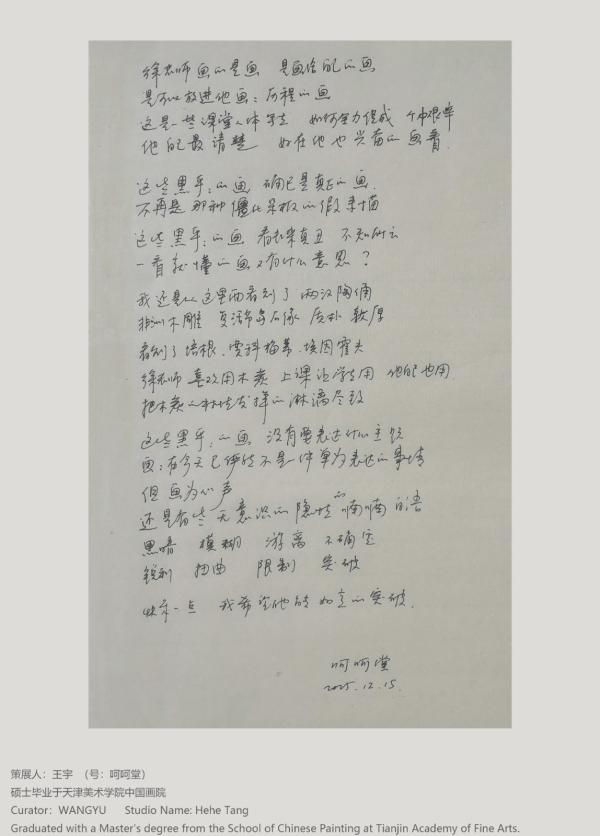 徐老师画的是画 是画给自己的画
是可以放进他画:历程的画
这是一些课堂人体写生 如何全力促成 个中艰辛
他自己最清楚 好在他也兴奋的画着
这些黑乎:的画 确已是真正的画
不再是那种僵化呆板的假素描
这些黑乎:的画 看起来真丑 不知所云
一看就懂的画又有什么意思?
我还是从这里面看到了两汉陶俑
非洲木雕 复活节岛石像 质朴 敦厚
看到了培根、贾科梅蒂、埃因霍夫
徐老师喜欢用木炭 上课让学生用 他自己也用
把木炭的特性发挥的淋漓尽致
这些黑乎:的画 没有要表达什么主题
画:在今天已经不是一件单为表达的事情
但画为心声
还是有些无意识的隐性的喃喃自语
黑暗 模糊 游离 不确定
锐利 扭曲 限制 突破
快乐一点 我希望他能如意的突破
呵呵堂
2025.12.15.
策展人:王宇 (号:呵呵堂)
硕士毕业于天津美术学院中国画院
Curator: WANGYU Studio Name: Hehe Tang
Graduated with a Master's degree from the School of Chinese Painting at Tianjin Academy of Fine Arts.